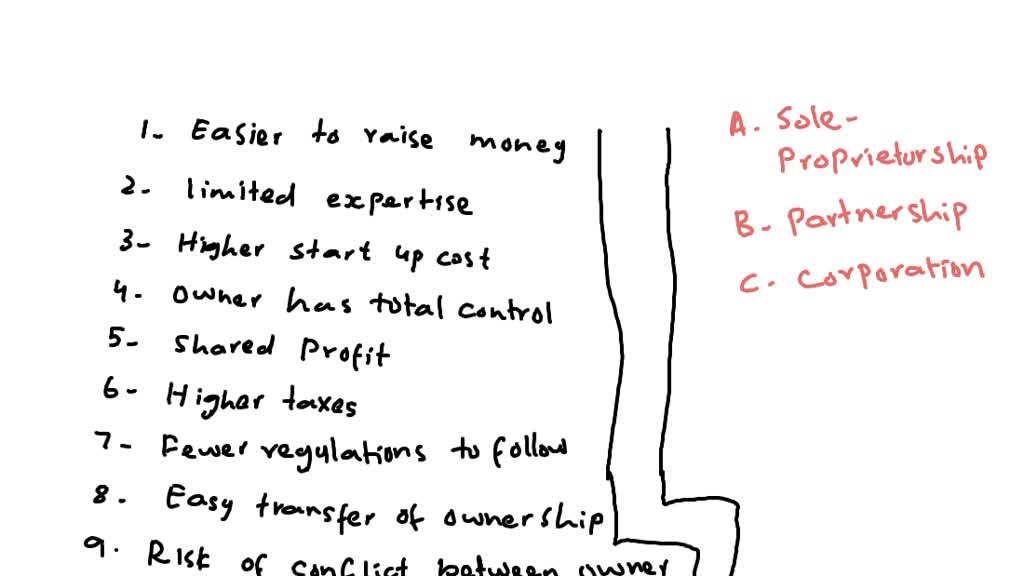 1- Easier to raise money
2- limited expertise
3- Higher start up cost
4- owner has total control
5- shared Profit
6- Higher taxes
7- Fewer regulations to follow
8- Easy transfer of ownership
9. Risk of conflict between owner
A. Sole-
Proprietorship
B- Partnership
C. Corporation